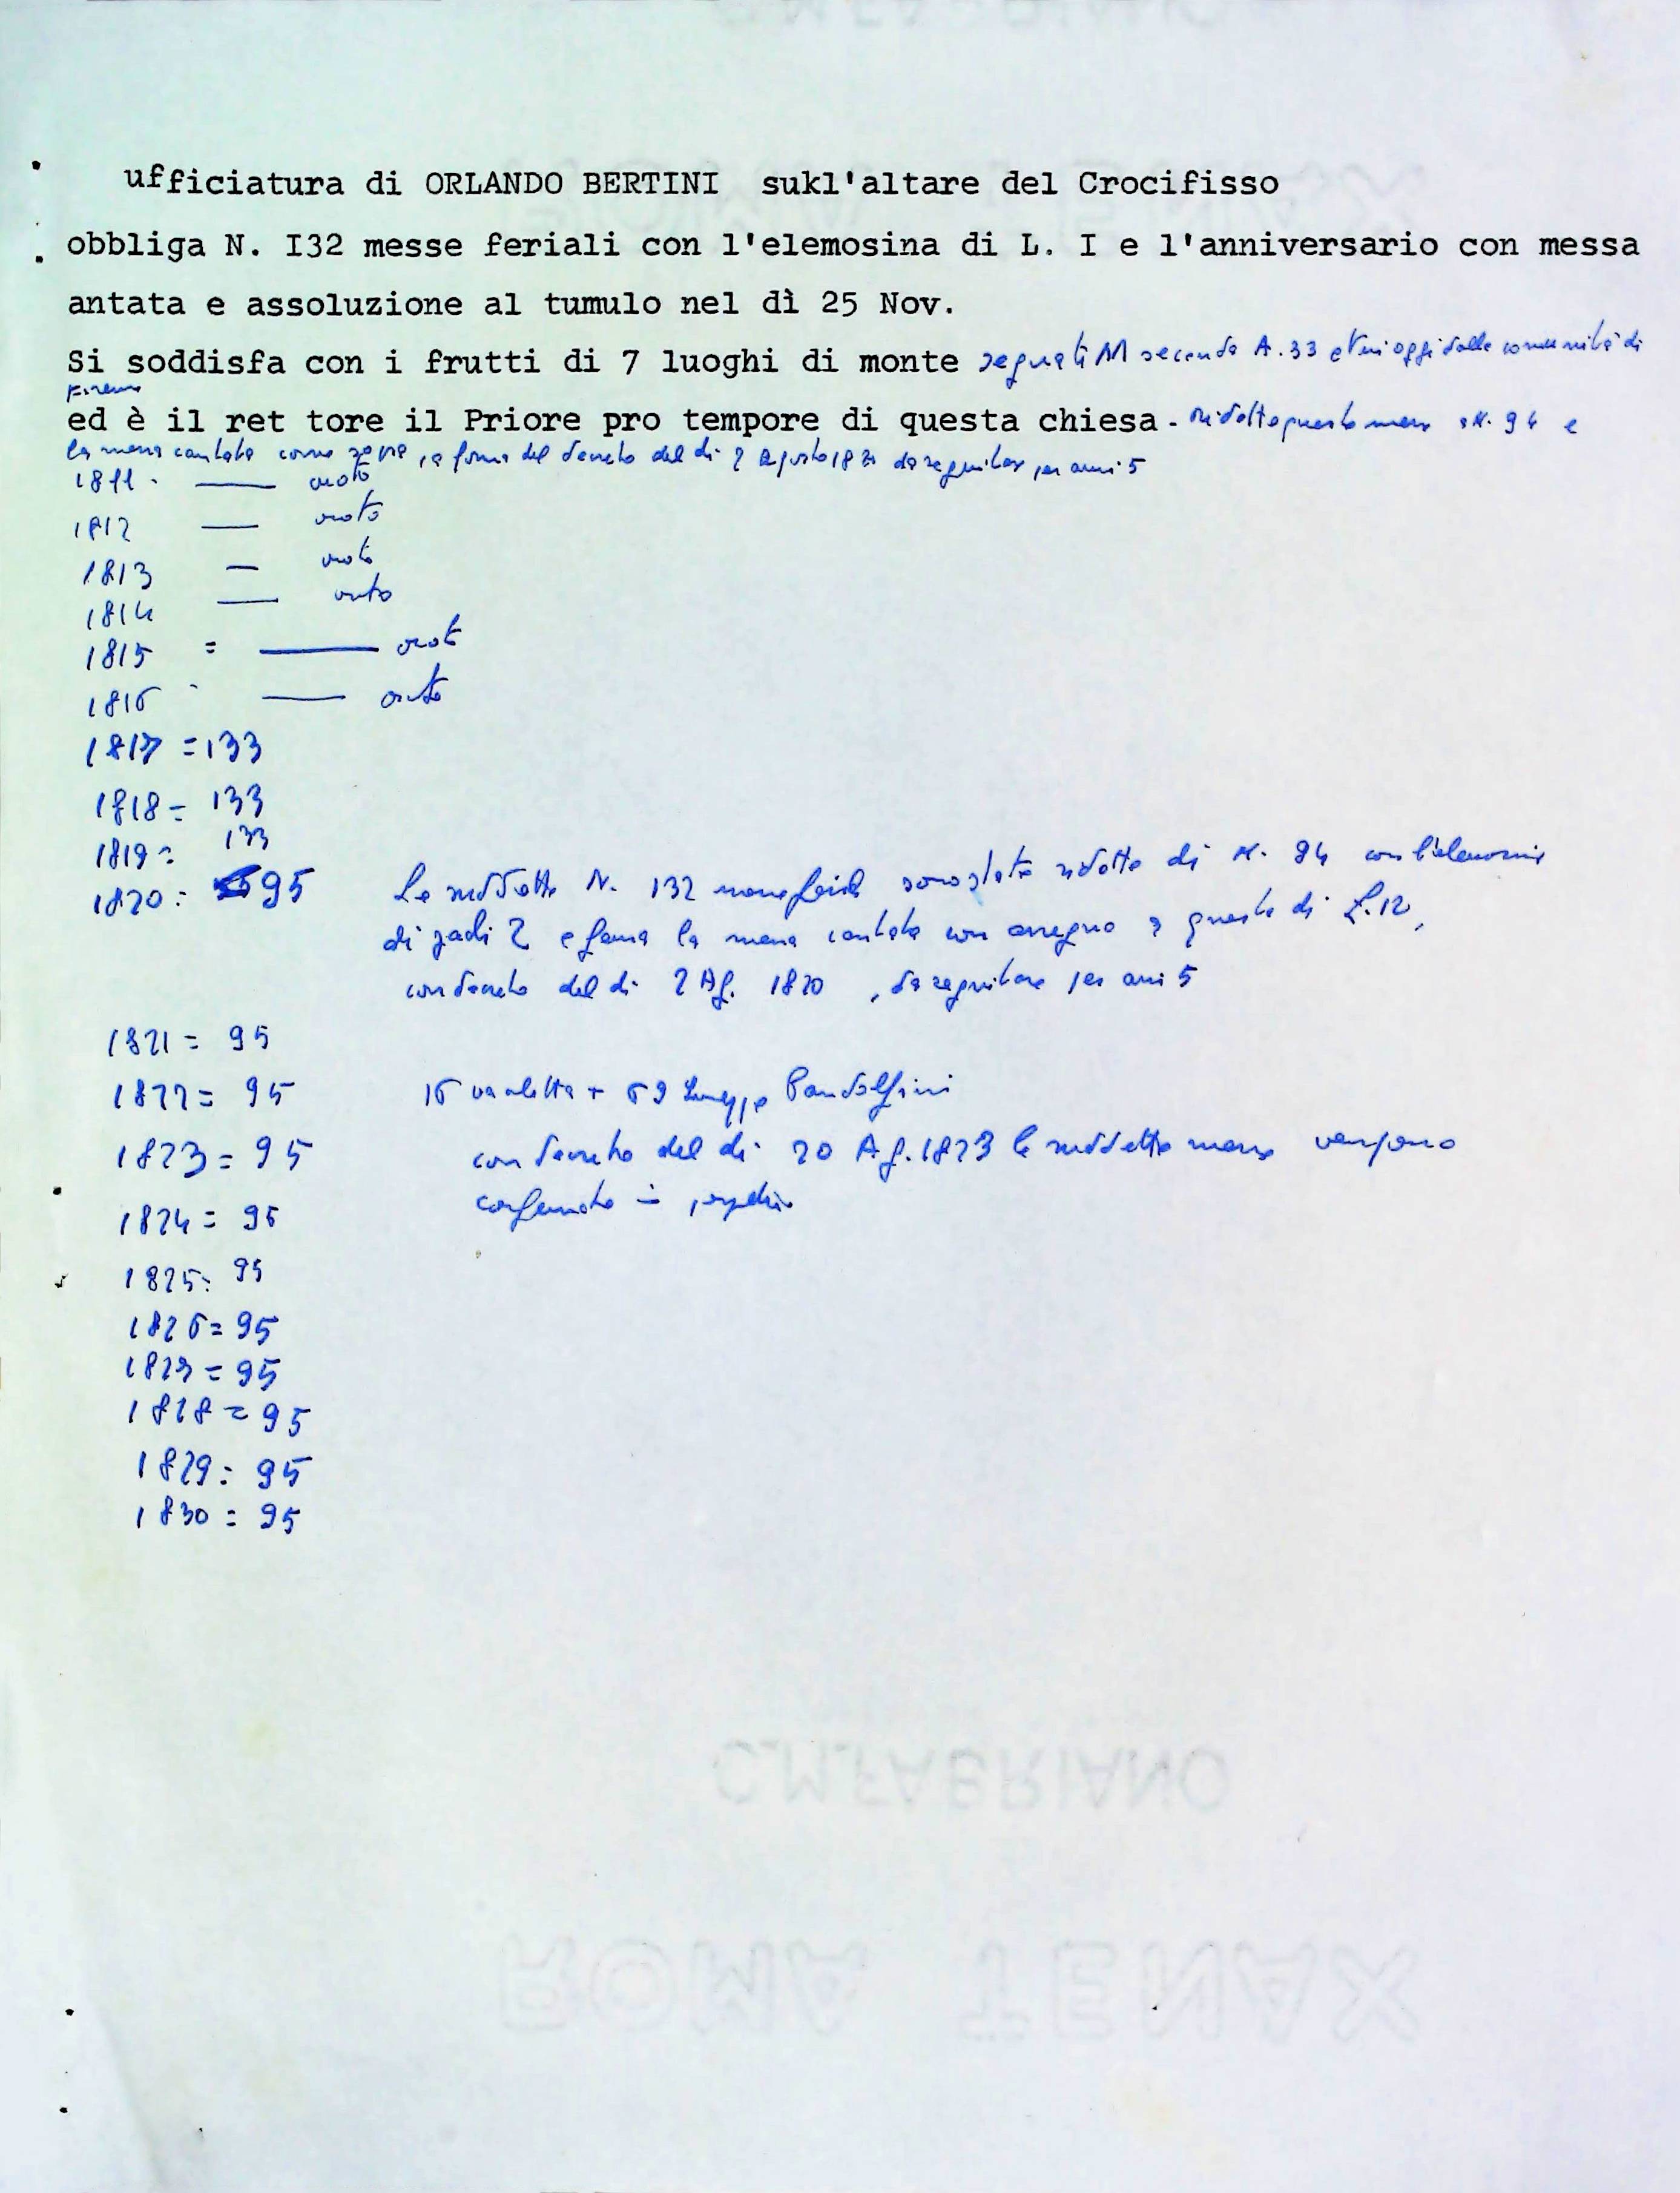 ufficiatura di ORLANDO BERTINI sukl'altare del Crocifisso
obbliga N. I32 messe feriali con l'elemosina di L. I e l'anniversario con messa
antata e assoluzione al tumulo nel dì 25 Nov.
Si soddisfa con i frutti di 7 luoghi di monte segnati M secondo A. 33 oggi dalla comunità di
Firenze
ed è il ret tore il Priore pro tempore di questa chiesa - Ridotte queste messe a N. 94 e
la messa cantata come sopra, a forma del decreto del di 2 Agosto da seguitar per anni 5
1811 - voto
1812 — voto
1813 — voto
1814 — voto
1815 = — voto
1816 — voto
1817 = 133
1818 = 133
1819 = 133
1820 = 95 Le suddette N. 132 messe feriali sono state ridotte di N. 94 con l'elemosina
di paoli 2 e ferma la messa cantata con assegno a questa di £. 12,
con decreto del di 2 Ag. 1820, da seguitare per anni 5
1821 = 95
1822 = 95 16 vacchetta + 69 Pandolfini
1823 = 95 con decreto del di 20 Ag. 1823 le suddette messe vengono
confermate in perpetuo
1824 = 95
1825 = 95
1826 = 95
1827 = 95
1828 = 95
1829 = 95
1830 = 95
C.M.FABRIANO
ROMA TENAX